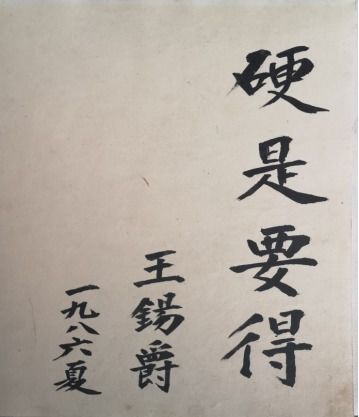 硬是要得
王錫爵
一九八六夏